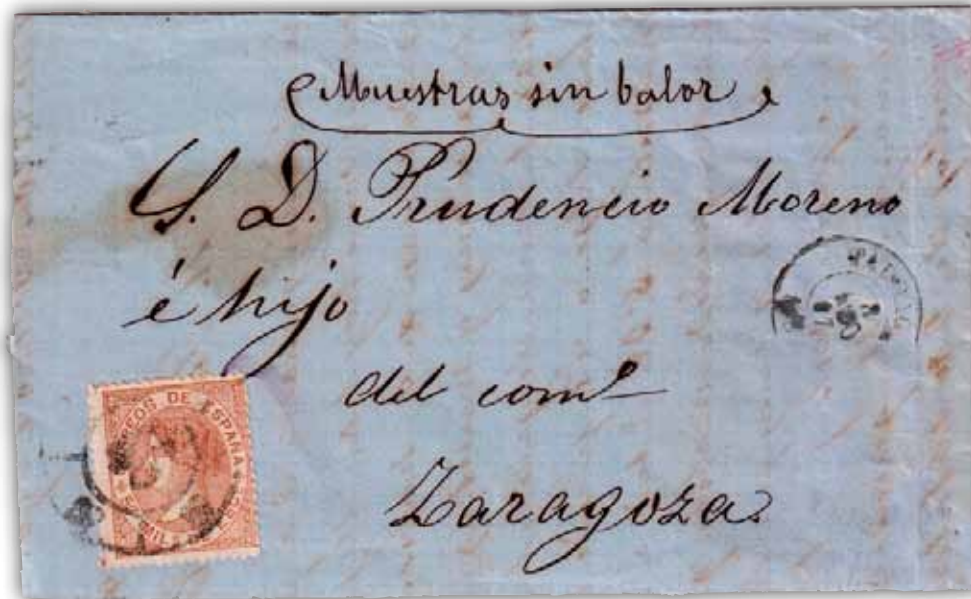 Muestras sin balor
S. D. Prudencio Moreno
é hijo
del comº
Zaragoza
CORREOS DE ESPAÑA